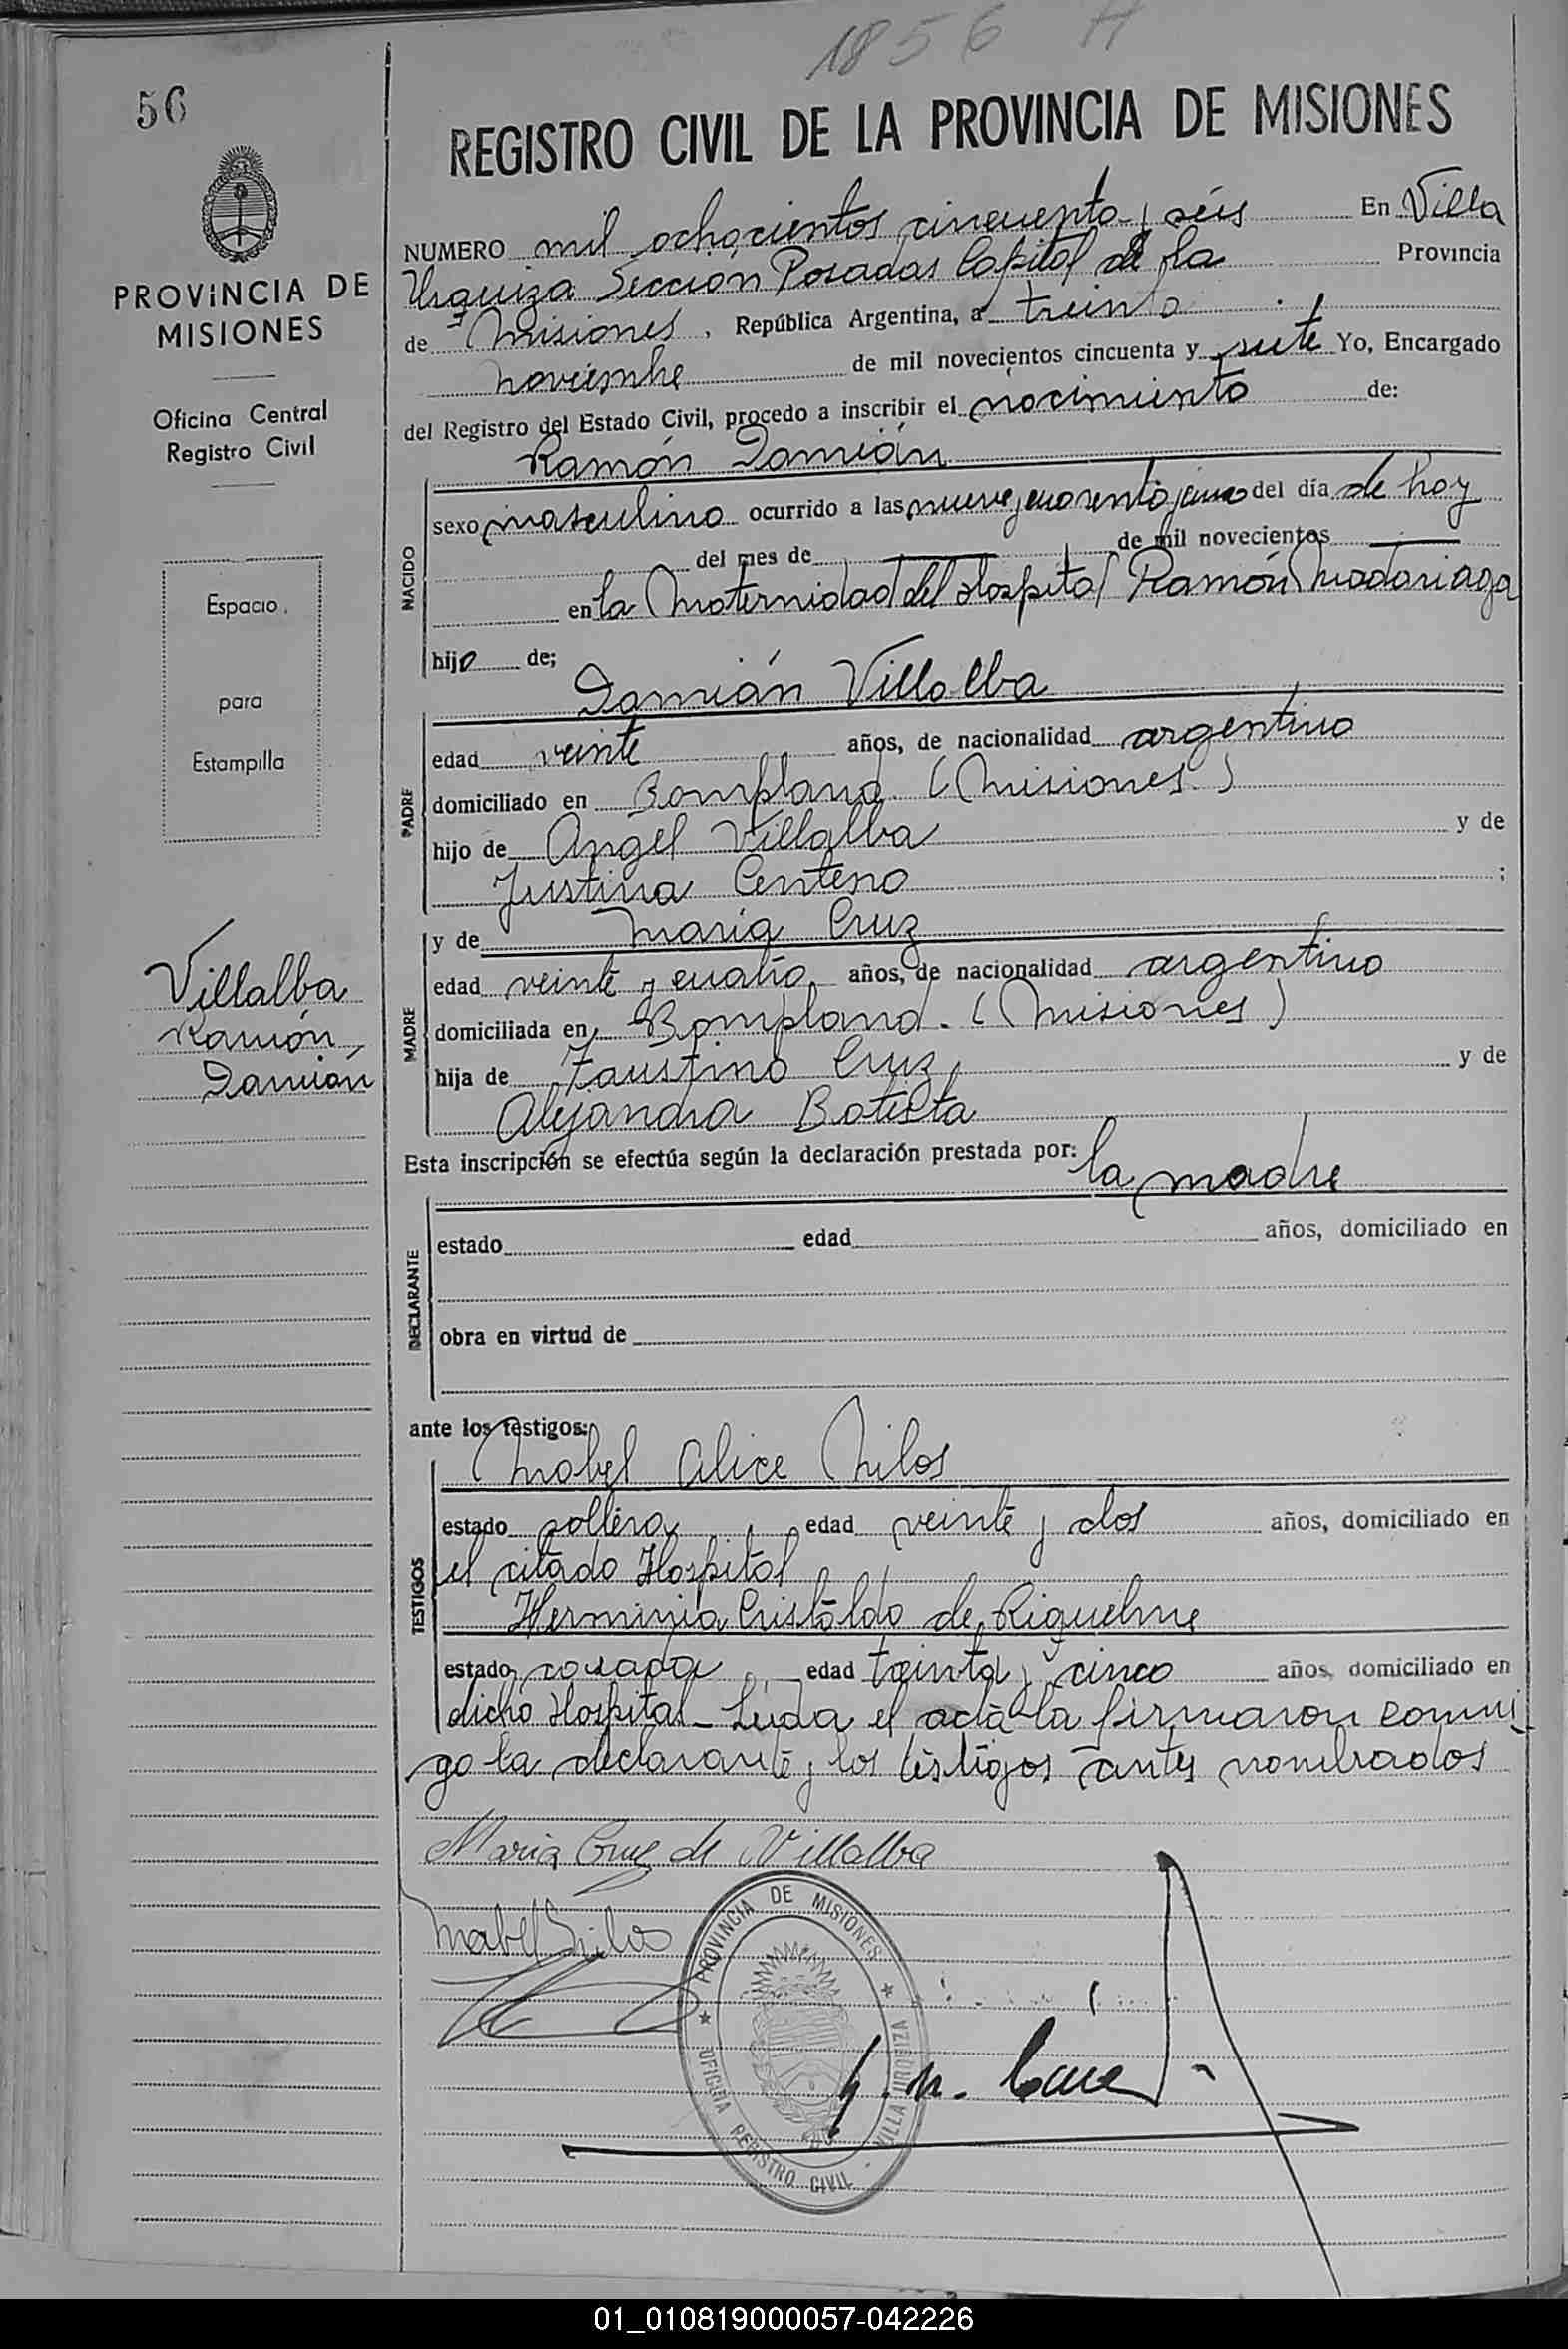 1856 H
56
REGISTRO CIVIL DE LA PROVINCIA DE MISIONES
PROVINCIA DE
MISIONES
Oficina Central
Registro Civil
Espacio
para
Estampilla
Villalba
Ramón
Damián
NUMERO mil ochocientos cincuenta y séis En Villa
Urquiza Sección Posadas Capital de la Provincia
de Misiones, República Argentina, a treinta
noviembre de mil novecientos cincuenta y siete Yo, Encargado
del Registro del Estado Civil, procedo a inscribir el nacimiento de:
NACIDO
Ramón Damián
sexo masculino ocurrido a las nueve y cuarenta y cinco del día de hoy
del mes de de mil novecientos
en la Maternidad del Hospital Ramón Madariaga
hijo de;
PADRE
Damián Villalba
edad veinte años, de nacionalidad argentino
domiciliado en Bompland. (Misiones.)
hijo de Angel Villalba y de
Justina Centeno ;
MADRE
y de María Cruz
edad veinte y cuatro años, de nacionalidad argentino
domiciliada en Bompland. (Misiones)
hija de Faustino Cruz y de
Alejandra Batista
Esta inscripción se efectúa según la declaración prestada por: la madre
DECLARANTE
estado edad años, domiciliado en
obra en virtud de
ante los testigos:
TESTIGOS
Mabel Alice Silos
estado soltera edad veinte y dos años, domiciliado en
el citado Hospital
Herminia Cristaldo de Riquelme
estado casada edad treinta y cinco años, domiciliado en
dicho Hospital - Leída el acta la firmaron conmi-
go la declarante y los testigos antes nombrados
Maria Cruz de Villalba
Mabel Silos
PROVINCIA DE MISIONES
OFICINA REGISTRO CIVIL - VILLA URQUIZA
01_010819000057-042226